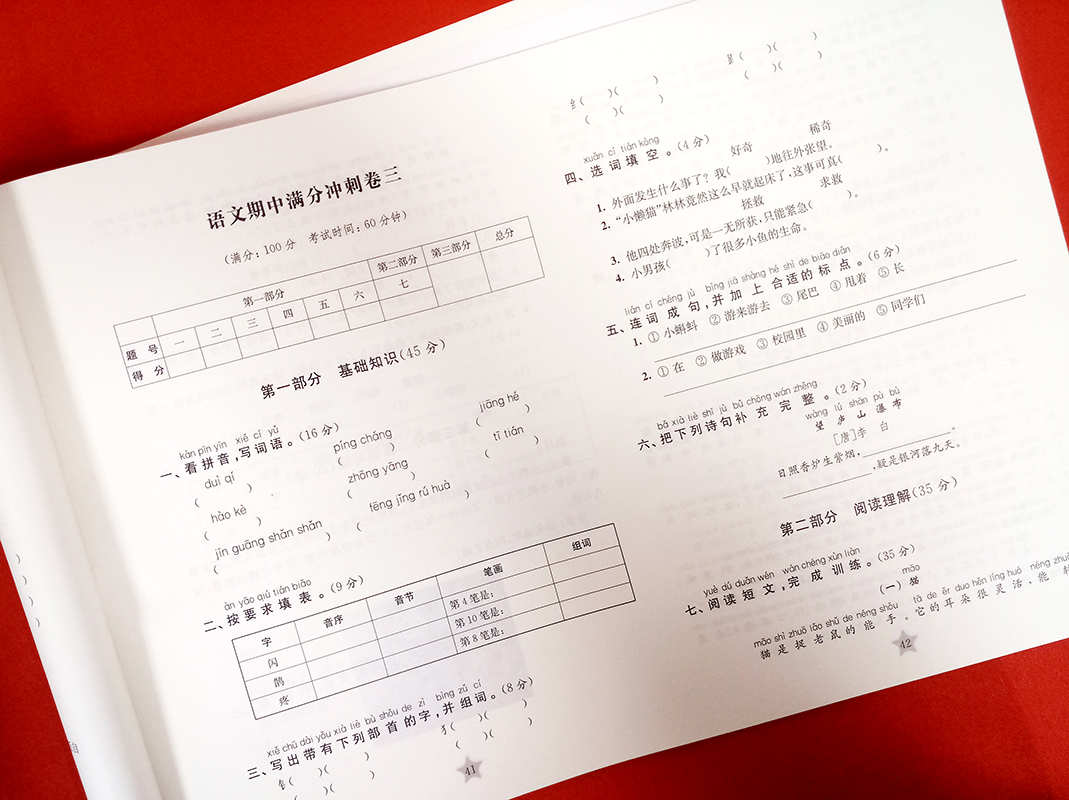 语文期中满分冲刺卷三
(满分：100分 考试时间：60分钟)
第一部分 第二部分 第三部分 总分
题号 一 二 三 四 五 六 七
得分
第一部分 基础知识(45分)
kàn pīn yīn xiě cí yǔ
一、看拼音，写词语。(16分)
duì qí píng cháng jiāng hé
( ) ( ) ( )
hào kè zhōng yāng tī tián
( ) ( ) ( )
jīn guāng shǎn shǎn fēng jǐng rú huà
( ) ( )
àn yāo qiú tián biǎo
二、按要求填表。(9分)
字 音序 音节 笔画 组词
闪 第4笔是：
鹊 第10笔是：
疼 第8笔是：
xiě chū dài yǒu xià liè bù shǒu de zì bìng zǔ cí
三、写出带有下列部首的字，并组词。(8分)
钅( )( ) 犭( )( )
( ) ( )( )
41
纟( )( ) ( )( )
( )( ) ( )( )
xuǎn cí tián kòng
四、选词填空。(4分)
好奇 稀奇
1. 外面发生什么事了？我( )地往外张望。
2. “小懒猫”林林竟然这么早就起床了，这事可真( )。
拯救 求救
3. 他四处奔波，可是一无所获，只能紧急( )。
4. 小男孩( )了很多小鱼的生命。
lián cí chéng jù bìng jiā shàng hé shì de biāo diǎn
五、连词成句，并加上合适的标点。(6分)
1. ①小蝌蚪 ②游来游去 ③尾巴 ④甩着 ⑤长
2. ①在 ②做游戏 ③校园里 ④美丽的 ⑤同学们
bǎ xià liè shī jù bǔ chōng wán zhěng
六、把下列诗句补充完整。(2分)
wàng lú shān pù bù
望庐山瀑布
[唐]李白
日照香炉生紫烟，________。
________，疑是银河落九天。
第二部分 阅读理解(35分)
yuè dú duǎn wén wán chéng xùn liàn
七、阅读短文，完成训练。(35分)
māo
(一)猫
māo shì zhuō lǎo shǔ de néng shǒu tā de ěr duo hěn líng huó néng zhuǎ
猫是捉老鼠的能手。它的耳朵很灵活，能
42